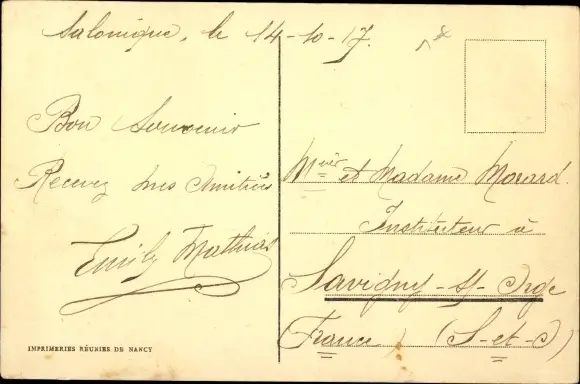 Salonique, le 14-10-17.
Bon Souvenir
Recevez mes Amitiés
Emily Mathias
IMPRIMERIES RÉUNIES DE NANCY
Mr et Madame Morard
Instituteur à
Savigny-s/-Orge
France) (S-et-O)